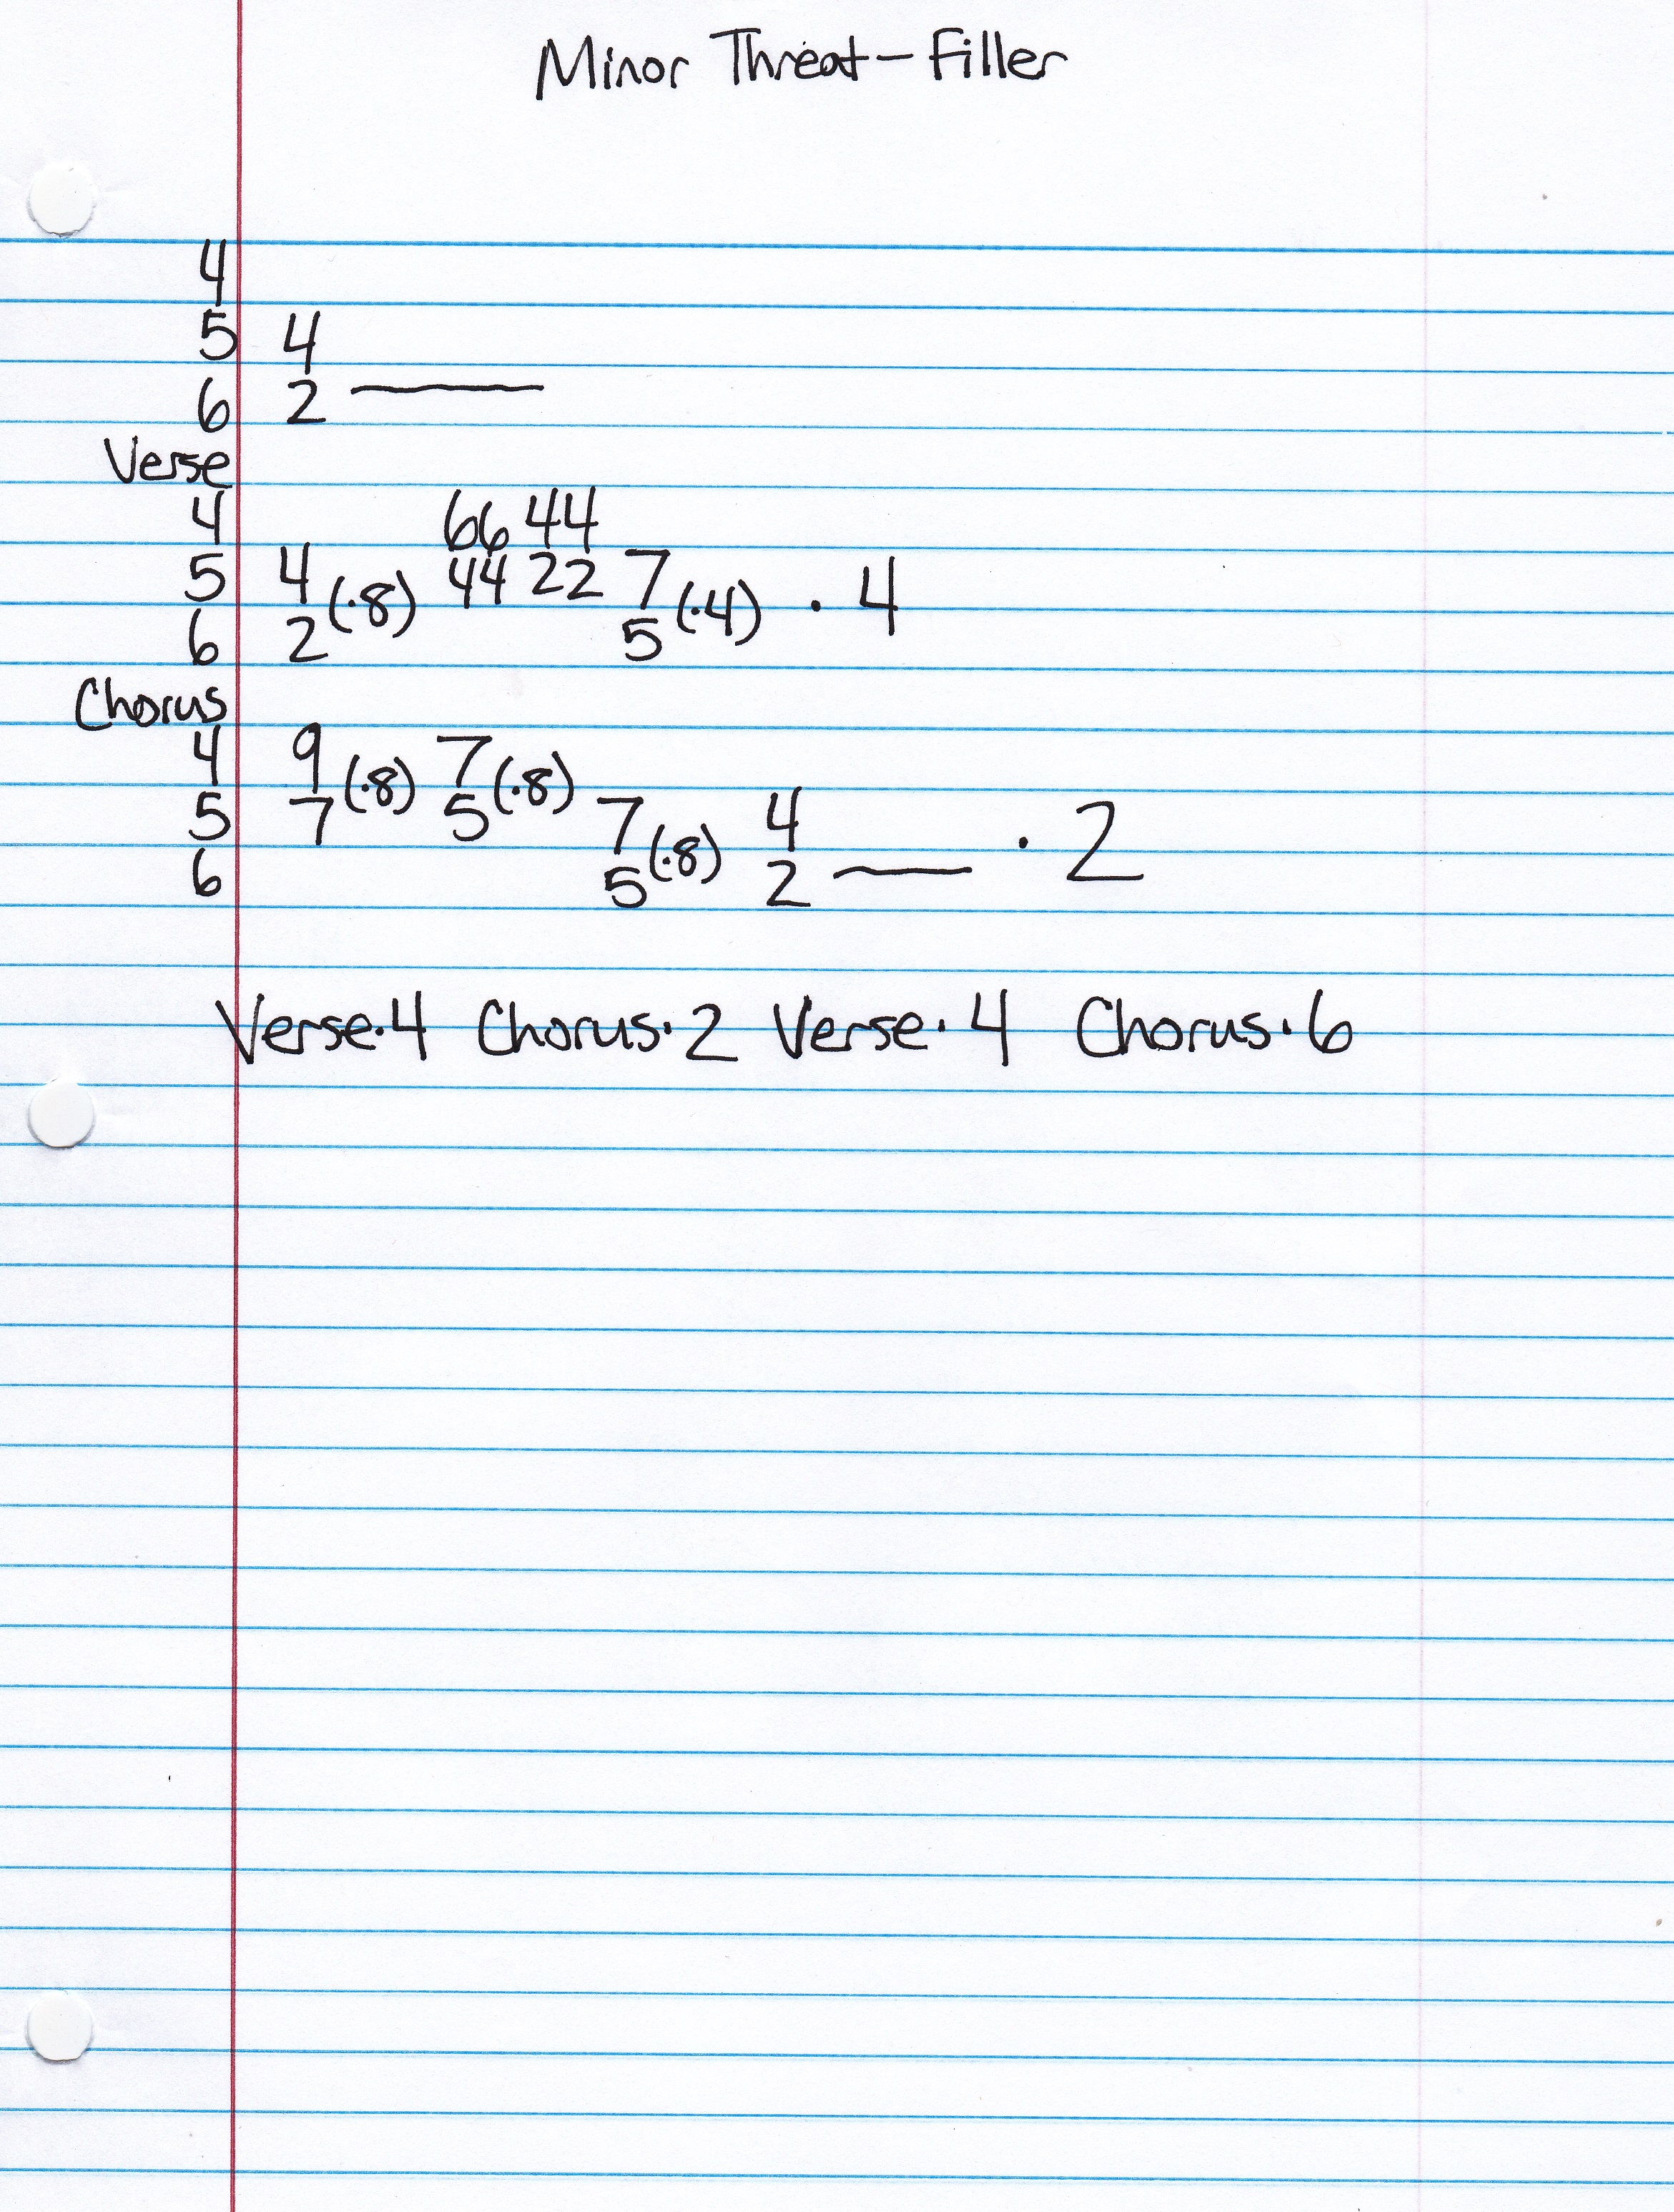 Minor Threat - Filler
4
5 4
6 2 ———
Verse
4 66 44
5 4 (·8) 44 22 7 (·4) · 4
6 2 5
Chorus
4 9 (·8) 7 (·8)
5 7 5 7 (·8) 4 · 2
6 5 2 ———
Verse·4 Chorus·2 Verse·4 Chorus·6